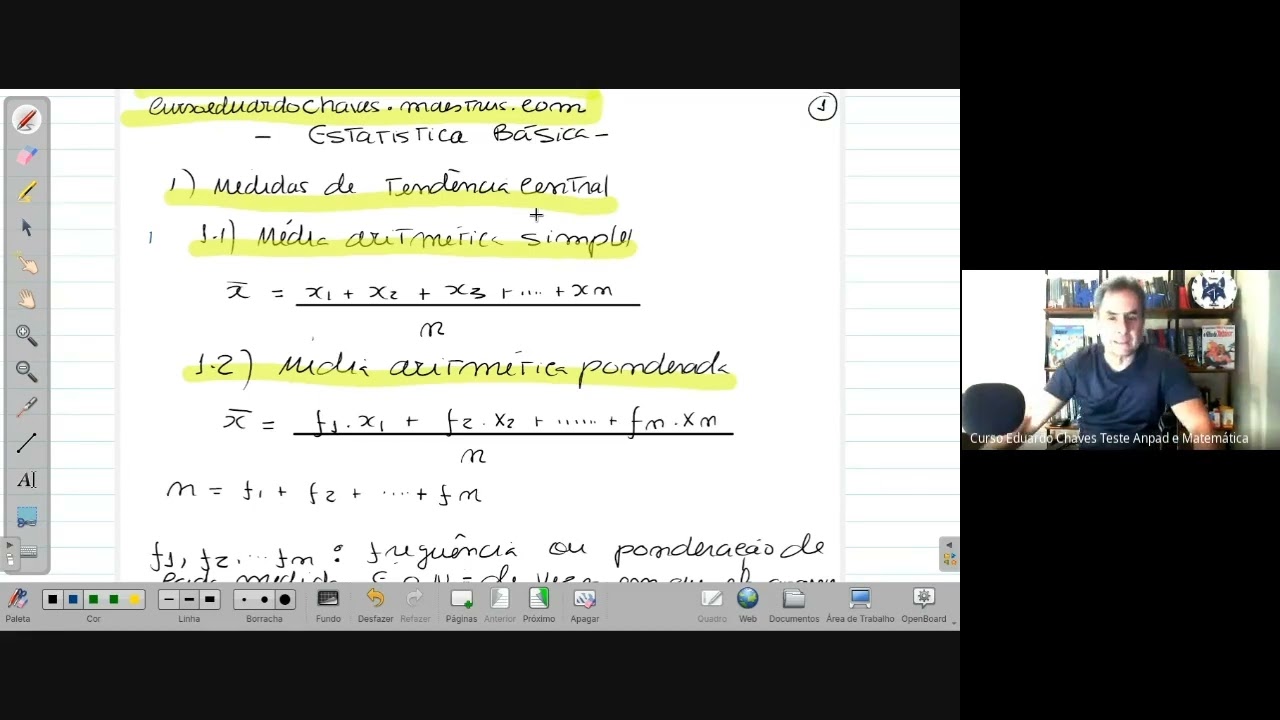 cursoeduardochaves.maestrus.com
1
- ESTATISTICA BÁSICA -
1) Medidas de Tendência central
1.1) Média aritmética simples
x̄ = x1 + x2 + x3 + .... + xn
n
1.2) Média aritmética ponderada
x̄ = f1.x1 + f2.x2 + ...... + fn.xn
n
n = f1 + f2 + .... + fn
f1, f2, ... fn : frequência ou ponderação de
cada medida. É o Nº de vezes
Curso Eduardo Chaves Teste Anpad e Matemática
Paleta Cor Linha Borracha Fundo Desfazer Refazer Páginas Anterior Próximo Apagar Quadro Web Documentos Área de Trabalho OpenBoard